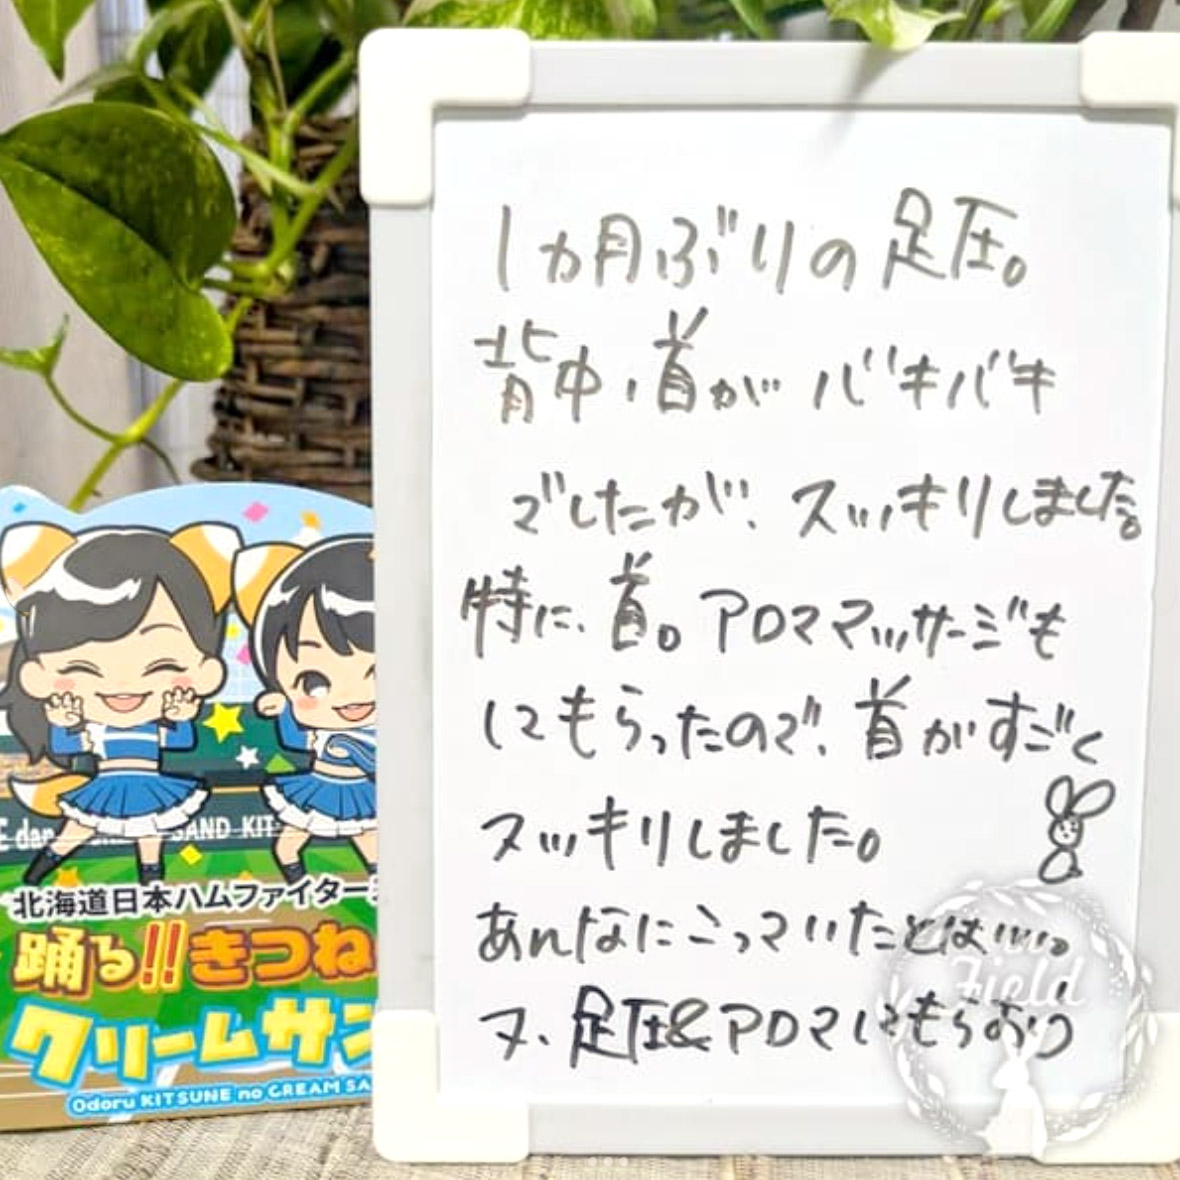 1ヵ月ぶりの足圧。
背中・首がバキバキ
でしたが、スッキリしました。
特に、首。アロママッサージも
してもらったので、首がすごく
スッキリしました。
あんなにこっていたとは…。
又、足圧&アロマしてもらおう
E dan
SAND KIT
北海道日本ハムファイターズ
踊る!!きつね
クリームサン
Odoru KITSUNE no CREAM SA
Field